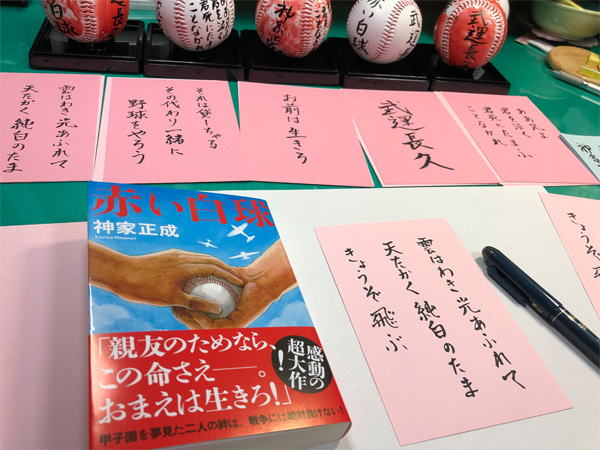 い白球
君死に
ことなかれ
い白球
武運
武運長
雲はわき 光あふれて
天たかく 純白のたま
それは貸しちゃる
その代わり一緒に
野球をやろう
お前は生きろ
武運長久
君を泣く
君死にたまふ
ことなかれ
赤い白球
神家正成
Kamiya Masanari
「親友のためなら、
この命さえ――。
おまえは生きろ!」
感動の
超大作!
甲子園を夢見た二人の絆は、戦争には絶対負けない!
雲はわき 光あふれて
天たかく 純白のたま
きょうぞ飛ぶ
きょうぞ飛